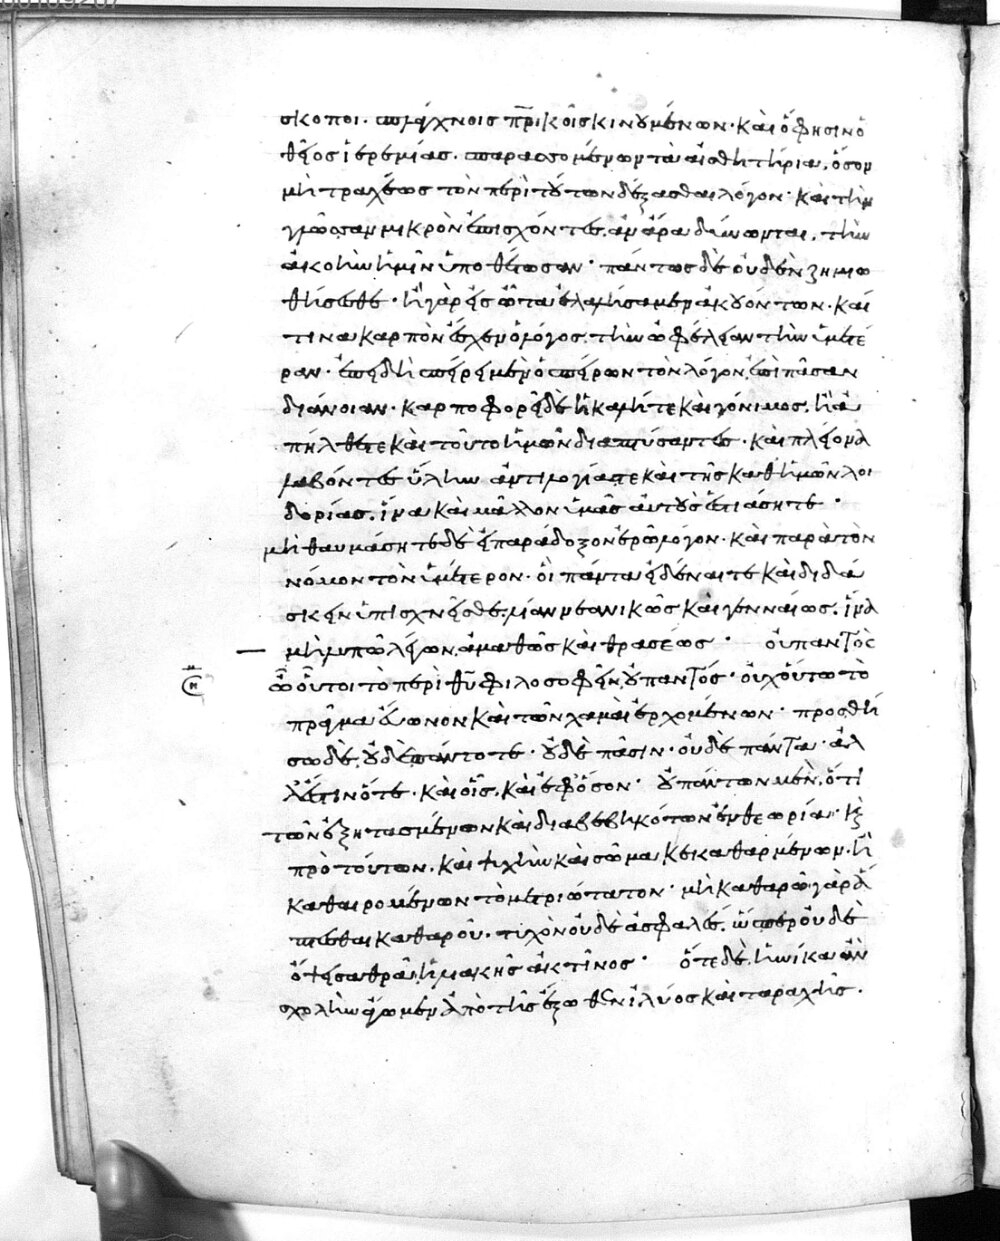 σκοποι· σπλάγχνοις πρικοῖς κινουμένων· καὶ ὅ φησιν ὁ
θεῖος ἱερεμίας. σπαρασσομένων τὰ αἰσθητήρια, ὅσον
μὴ τραχέως τὸν περὶ τούτων δέξασθαι λόγον· καὶ τὴν
γλῶσσαν μικρὸν ἐπισχόντες, ἂν ἄρα δύνωνται, τὴν
ἀκοὴν ἡμῖν ὑποθέτωσαν· πάντως δὲ οὐδὲν ζημιω
θήσεσθε· ἢ γὰρ εἰς ὦτα ἐλαλήσαμεν ἀκουόντων· καί
τινα καρπὸν ἔσχεν ὁ λόγος. τὴν ὠφέλειαν τὴν ὑμετέ
ραν· ἐπειδὴ σπείρει μὲν ὁ σπείρων τὸν λόγον ἐπὶ πᾶσαν
διάνοιαν· καρποφορεῖ δὲ ἡ καλή τε καὶ γόνιμος, ἢ ἀ
πήλθετε καὶ τοῦτο ἡμῶν διαπτύσαντες· καὶ πλείονα
λαβόντες ὕλην ἀντιλογίας τε καὶ τῆς καθ ἡμῶν λοι
δορίας. ἵνα καὶ μᾶλλον ὑμᾶς αὐτοὺς ἑστιάσητε·
μὴ θαυμάσητε δὲ εἰ παράδοξον ἐρῶ λόγον· καὶ παρὰ τὸν
νόμον τὸν ὑμέτερον· οἳ πάντα εἰδέναι τε καὶ διδά
σκειν ὑπισχνεῖσθε. λίαν νεανικῶς καὶ γενναίως. ἵνα
μὴ λυπῶ λέγων, ἀμαθῶς καὶ θρασέως· οὐ παντὸς
ὦ οὗτοι τὸ περὶ θυ φιλοσοφεῖν, οὐ παντός· οὐχ οὕτω τὸ
πρᾶγμα εὔωνον καὶ τῶν χαμαὶ ἐρχομένων· προσθή
σω δὲ, οὐδὲ πάντοτε· οὐδὲ πᾶσιν· οὐδὲ πάντα· ἀλ
λ' ἔστιν ὅτε· καὶ οἷς, καὶ ἐφ' ὅσον· οὐ πάντων μὲν, ὅτι
τῶν ἐξητασμένων καὶ διαβεβηκότων ἐν θεωρίᾳ· κ
πρὸ τούτων. καὶ ψυχὴν καὶ σῶμα κεκαθαρμένων. ἢ
καθαιρομένων τὸ μετριώτατον· μὴ καθαρῷ γὰρ ἅ
πτεσθαι καθαροῦ. τυχὸν οὐδὲ ἀσφαλές. ὥσπερ οὐδὲ
ὄψει σαθρᾷ ἡλιακῆς ἀκτῖνος· ὅτε δὲ, ἡνίκα ἂν
σχολὴν ἄγωμεν ἀπὸ τῆς ἔξωθεν ἰλύος καὶ ταραχῆς.